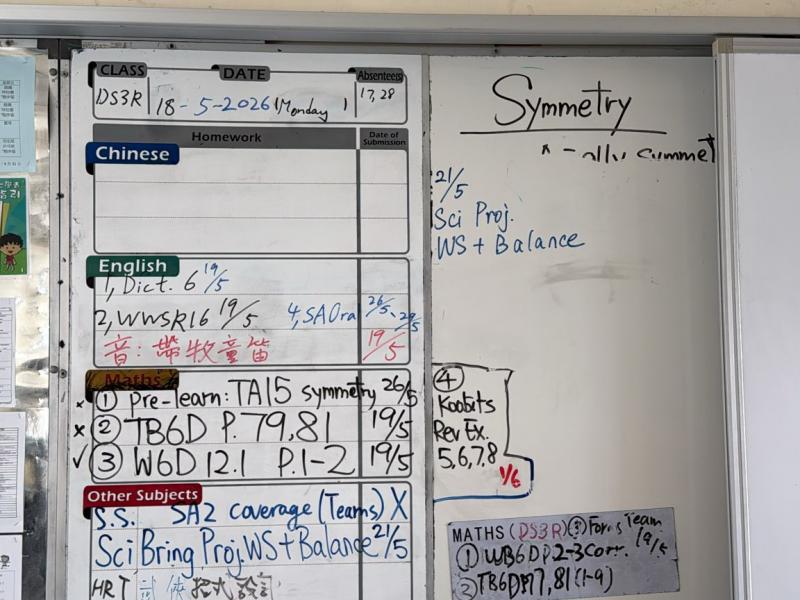 CLASS DATE Absentees
DS3R 18-5-2026 (Monday) 17, 28
Homework Date of Submission
Chinese
English
1, Dict. 6 19/5
2, WWSR16 19/5 4, SA Oral 26/5, 29/5
音: 帶牧童笛 19/5
Maths
x ① Pre-learn: TA15 symmetry 26/5
x ② TB6D P. 79, 81 19/5
✓ ③ W6D 12.1 P.1-2 19/5
Other Subjects
S.S. SA2 coverage (Teams) X
Sci Bring Proj. WS + Balance 21/5
HRT
Symmetry
21/5
Sci Proj.
WS + Balance
④
Koobits
Rev Ex.
5, 6, 7, 8
1/6
MATHS (DS3R) ③ Forms Team
① WB6D P2-3 Corr. 19/5
② TB6D P.77, 81 (1-9)